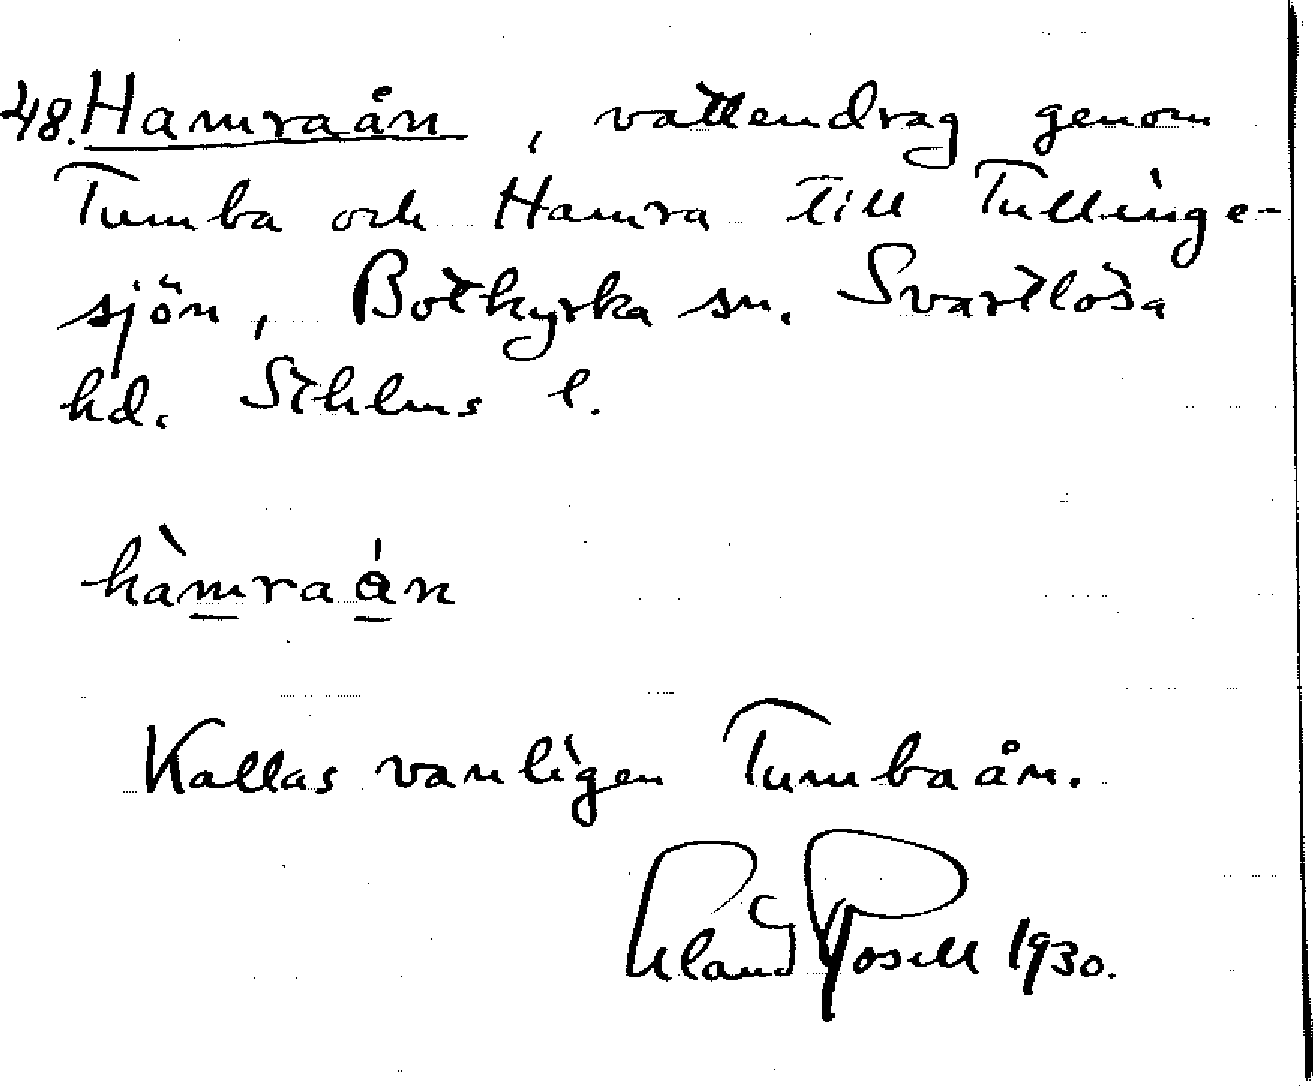 48. Hamraån, vattendrag genom
Tumba och Hamra till Tullinge-
sjön, Botkyrka sn. Svartlösa
hd. Sthlms l.
hàmraån
Kallas vanligen Tumbaån.
Erland Rosell 1930.